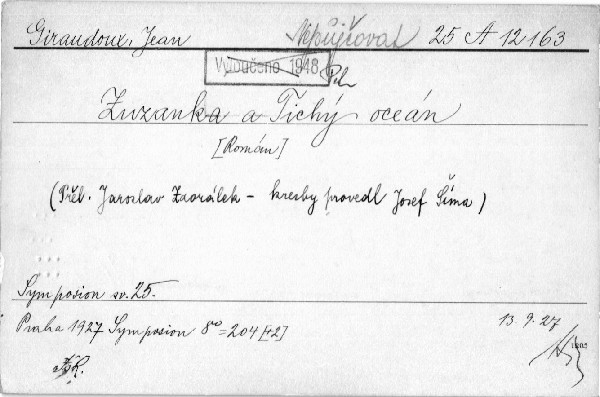 Giraudoux, Jean Nepůjčovat 25 A 12163
Vyloučeno 1948
Zuzanka a Tichý oceán
[Román]
(Přel. Jaroslav Zaorálek - kresby provedl Josef Šíma)
Symposion sv. 25.
Praha 1927 Symposion 8° = 204 [+2] 13. 9. 27